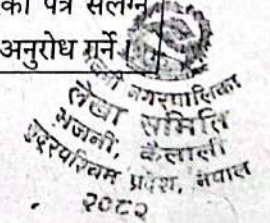 का पत्र संलग्न
अनुरोध गर्ने ।
नगरपालिका
लेखा समिति
भजनी, कैलाली
सुदूरपश्चिम प्रदेश, नेपाल
२०८२